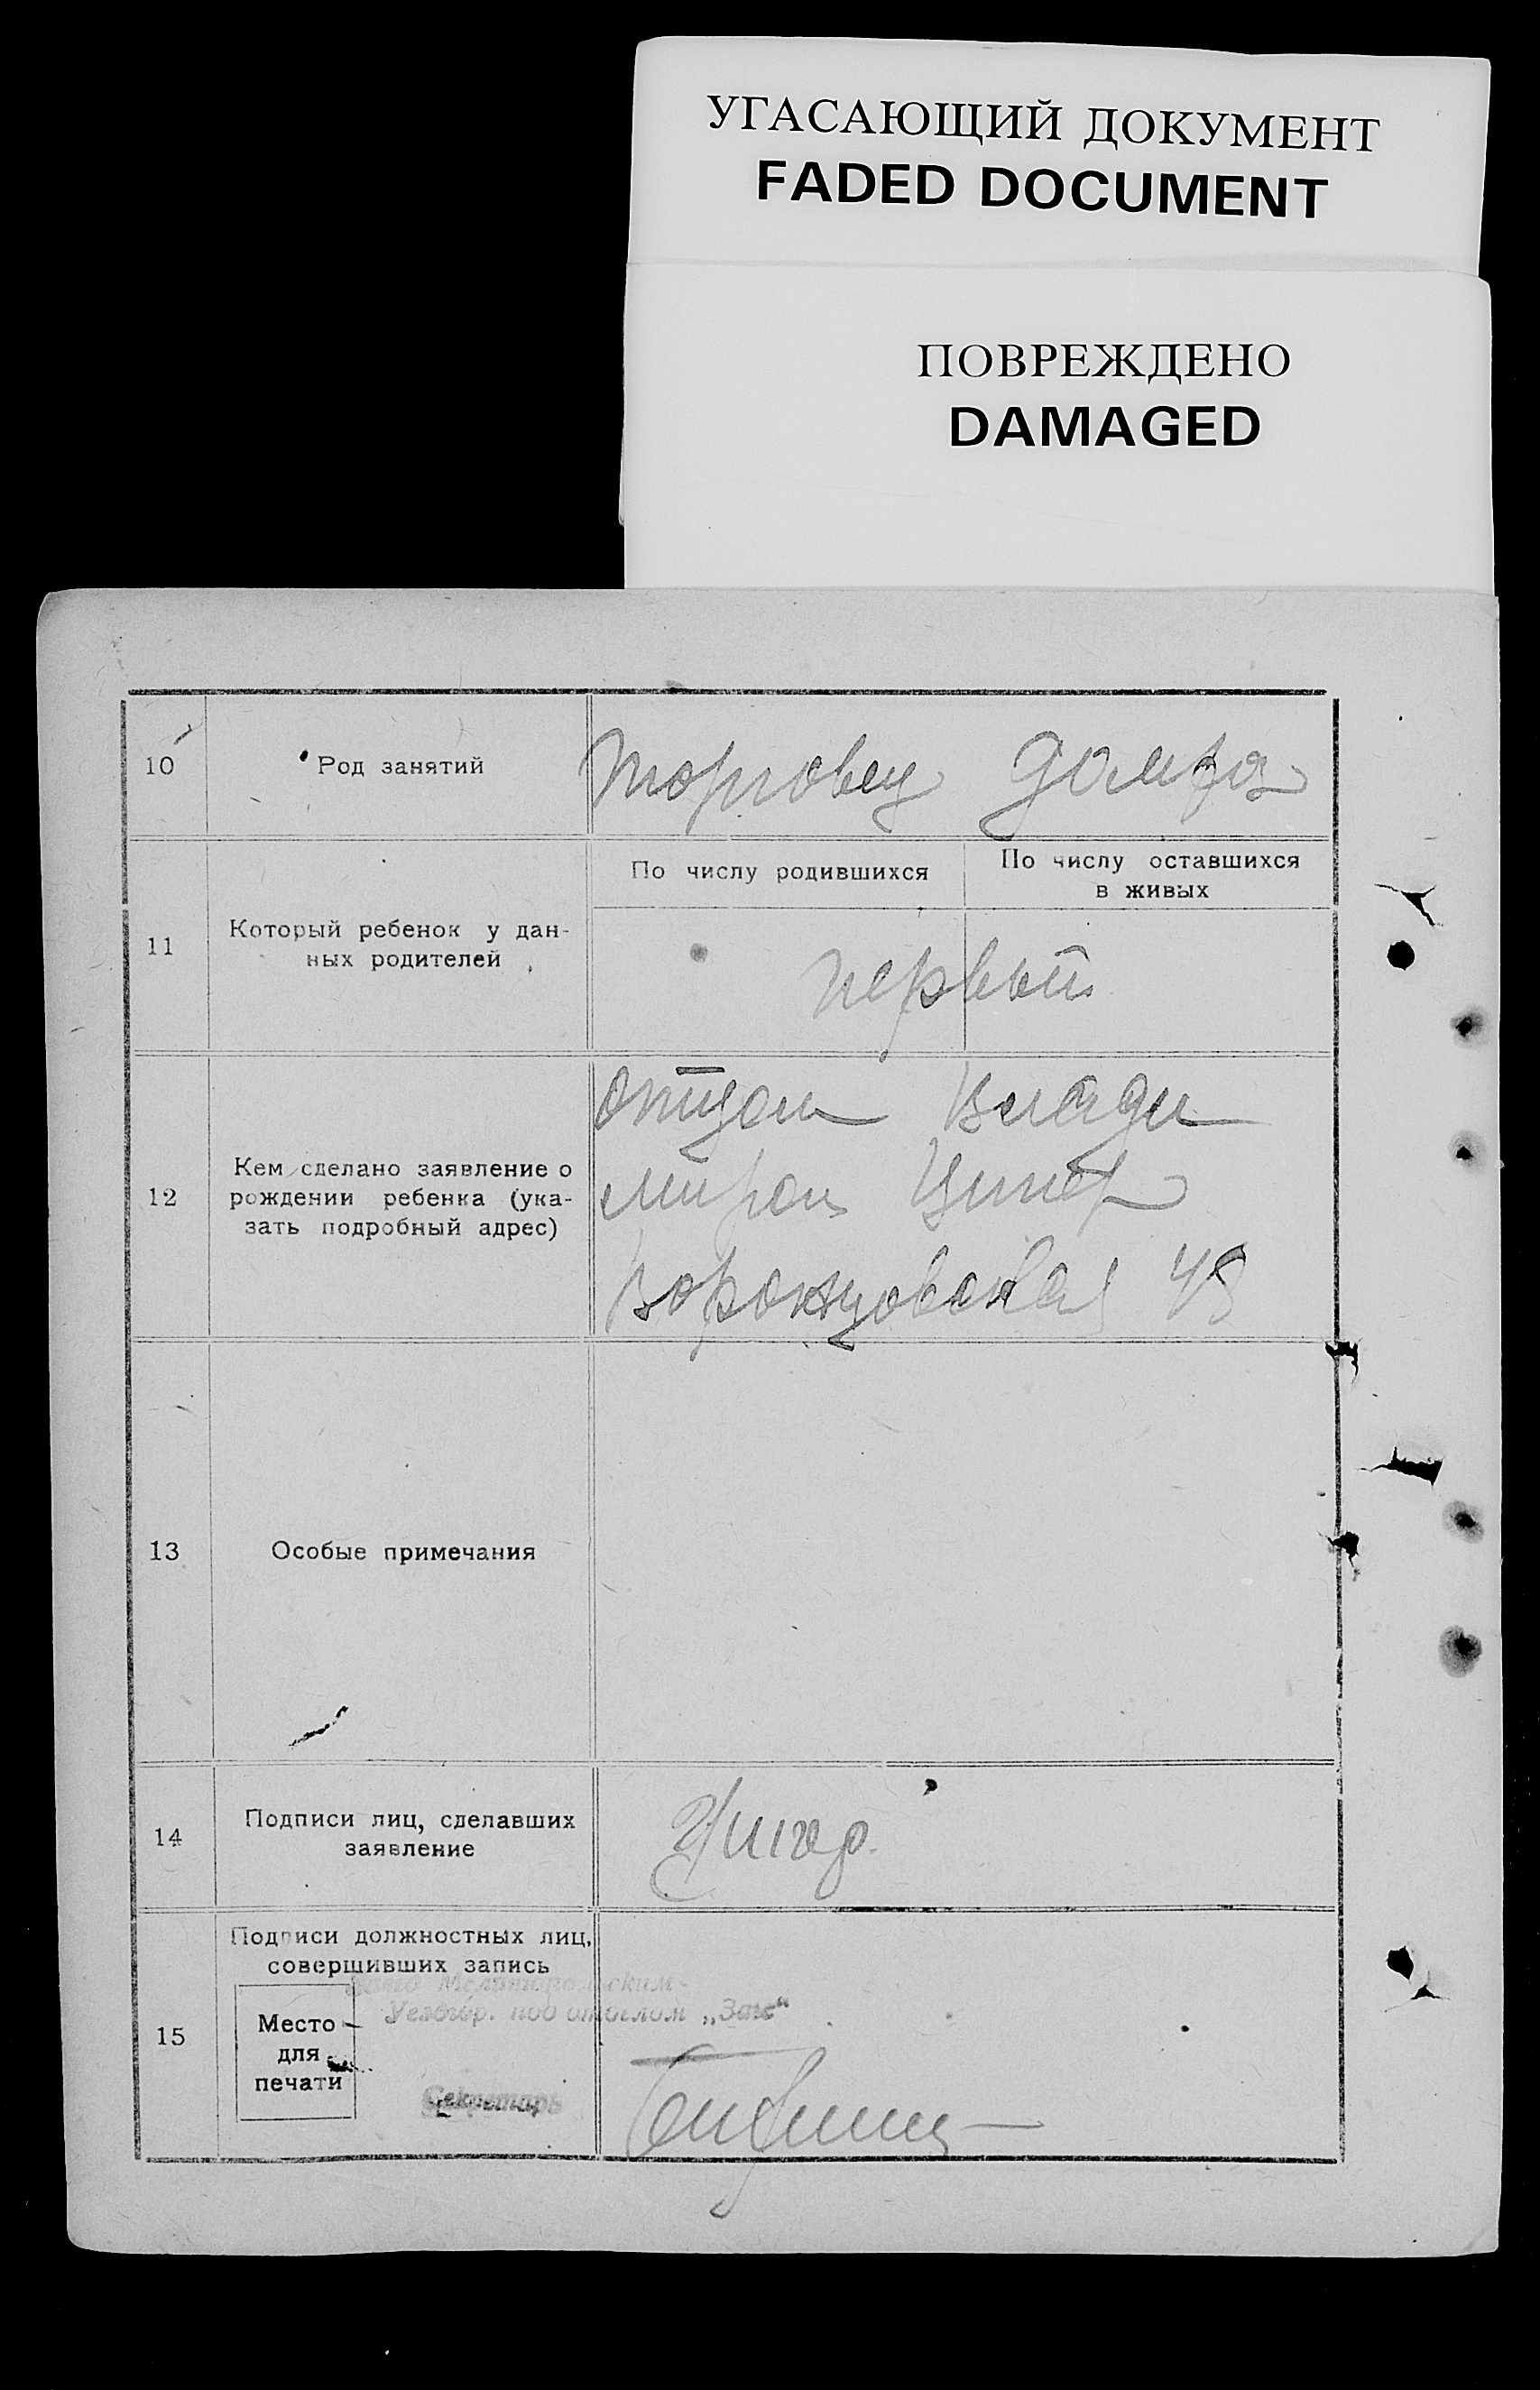 УГАСАЮЩИЙ ДОКУМЕНТ
FADED DOCUMENT
ПОВРЕЖДЕНО
DAMAGED
10
Род занятий
торговец домхоз
11
Который ребенок у дан-
ных родителей
По числу родившихся
По числу оставшихся
в живых
первый
12
Кем сделано заявление о
рождении ребенка (ука-
зать подробный адрес)
отцом Влади
миром
Воронцовская 48
13
Особые примечания
14
Подписи лиц, сделавших
заявление
15
Подписи должностных лиц,
совершивших запись
Место
для
печати
под отделом „Загс"
Секретарь